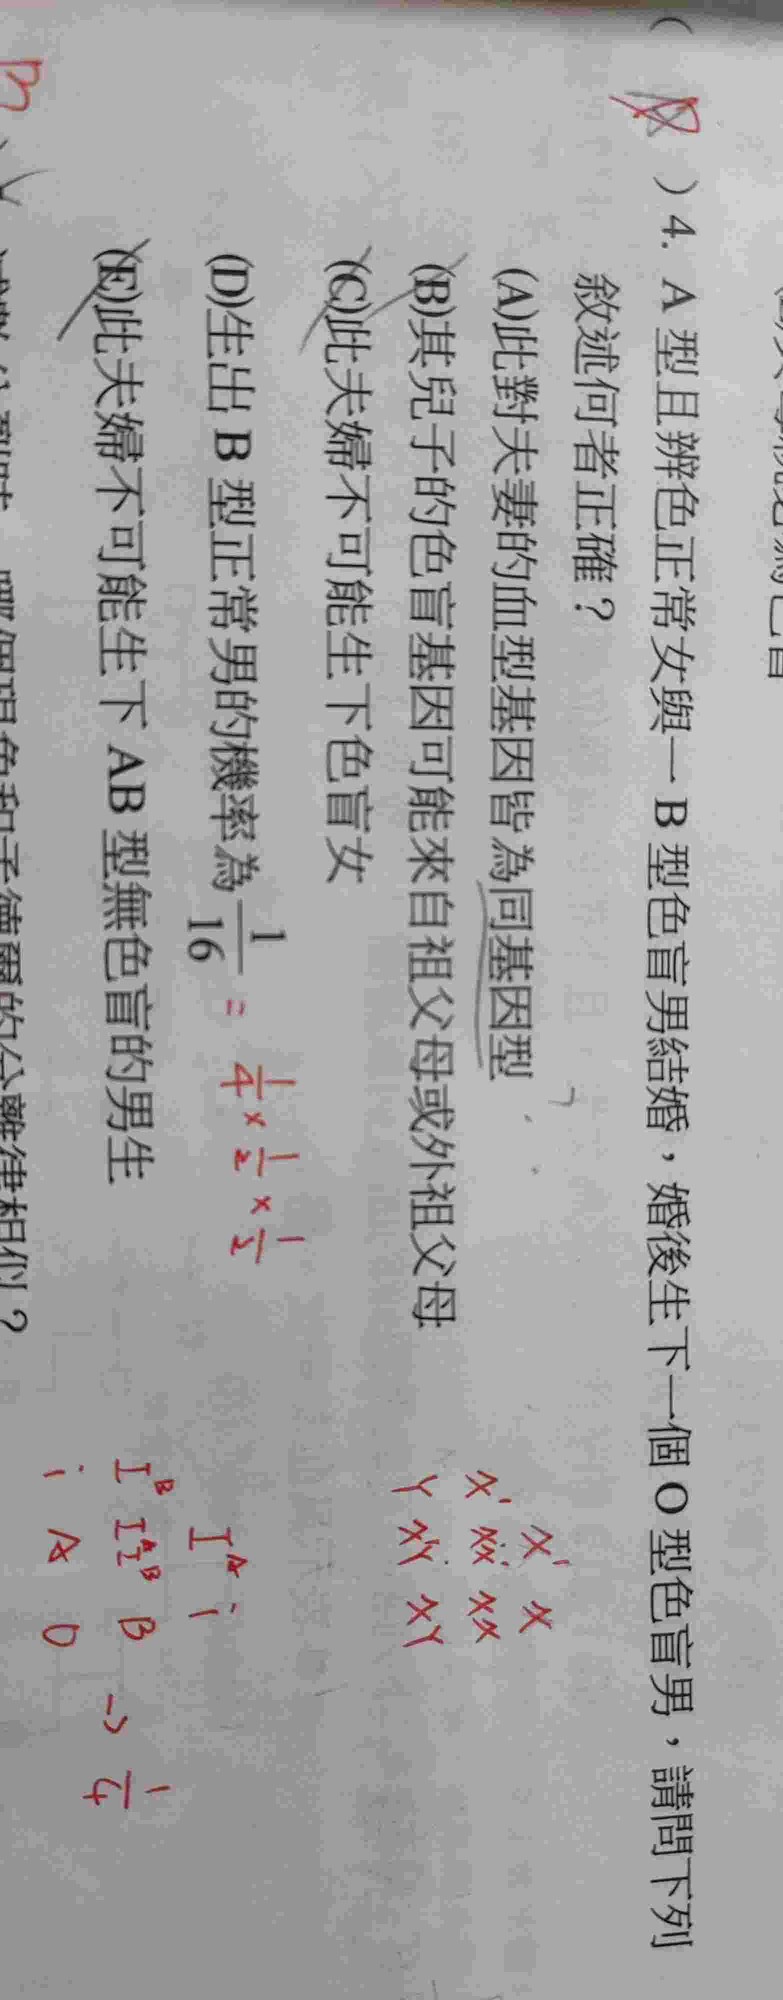 ( B )4. A 型且辨色正常女與一 B 型色盲男結婚，婚後生下一個 O 型色盲男，請問下列
敘述何者正確？
(A)此對夫妻的血型基因皆為同基因型
(B)其兒子的色盲基因可能來自祖父母或外祖父母
(C)此夫婦不可能生下色盲女
(D)生出 B 型正常男的機率為 1/16 = 1/4 × 1/2 × 1/2
(E)此夫婦不可能生下 AB 型無色盲的男生
X' X
X' X'X' XX'
Y X'Y XY
I^A i
I^B I^A I^B B → 1/4
i A O
和孟德爾的分離律相似？